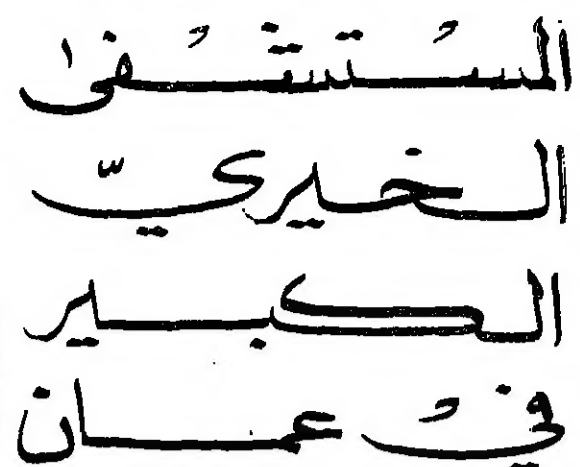 المسْتشْفىٰ
الخيريّ
الكبير
فيْ عمان